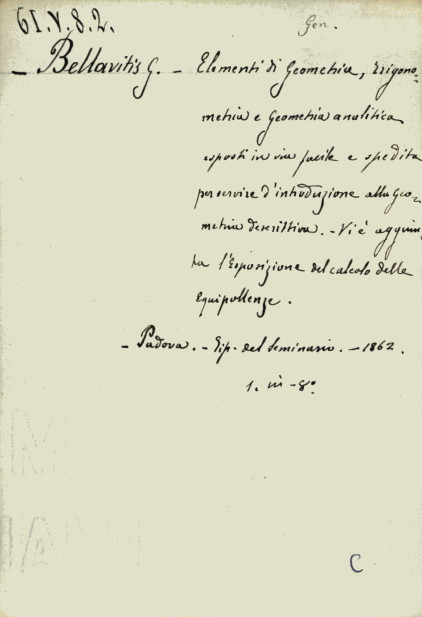 61.V.8.2.
Gen.
- Bellavitis G. - Elementi di Geometria, Trigono-
metria e Geometria analitica
esposti in via facile e spedita
per servire d'introduzione alla Geo-
metria descrittiva. - Vi è aggiun-
ta l'Esposizione del calcolo delle
Equipollenze.
- Padova. - Tip. del Seminario. - 1862.
1. in - 8º
C